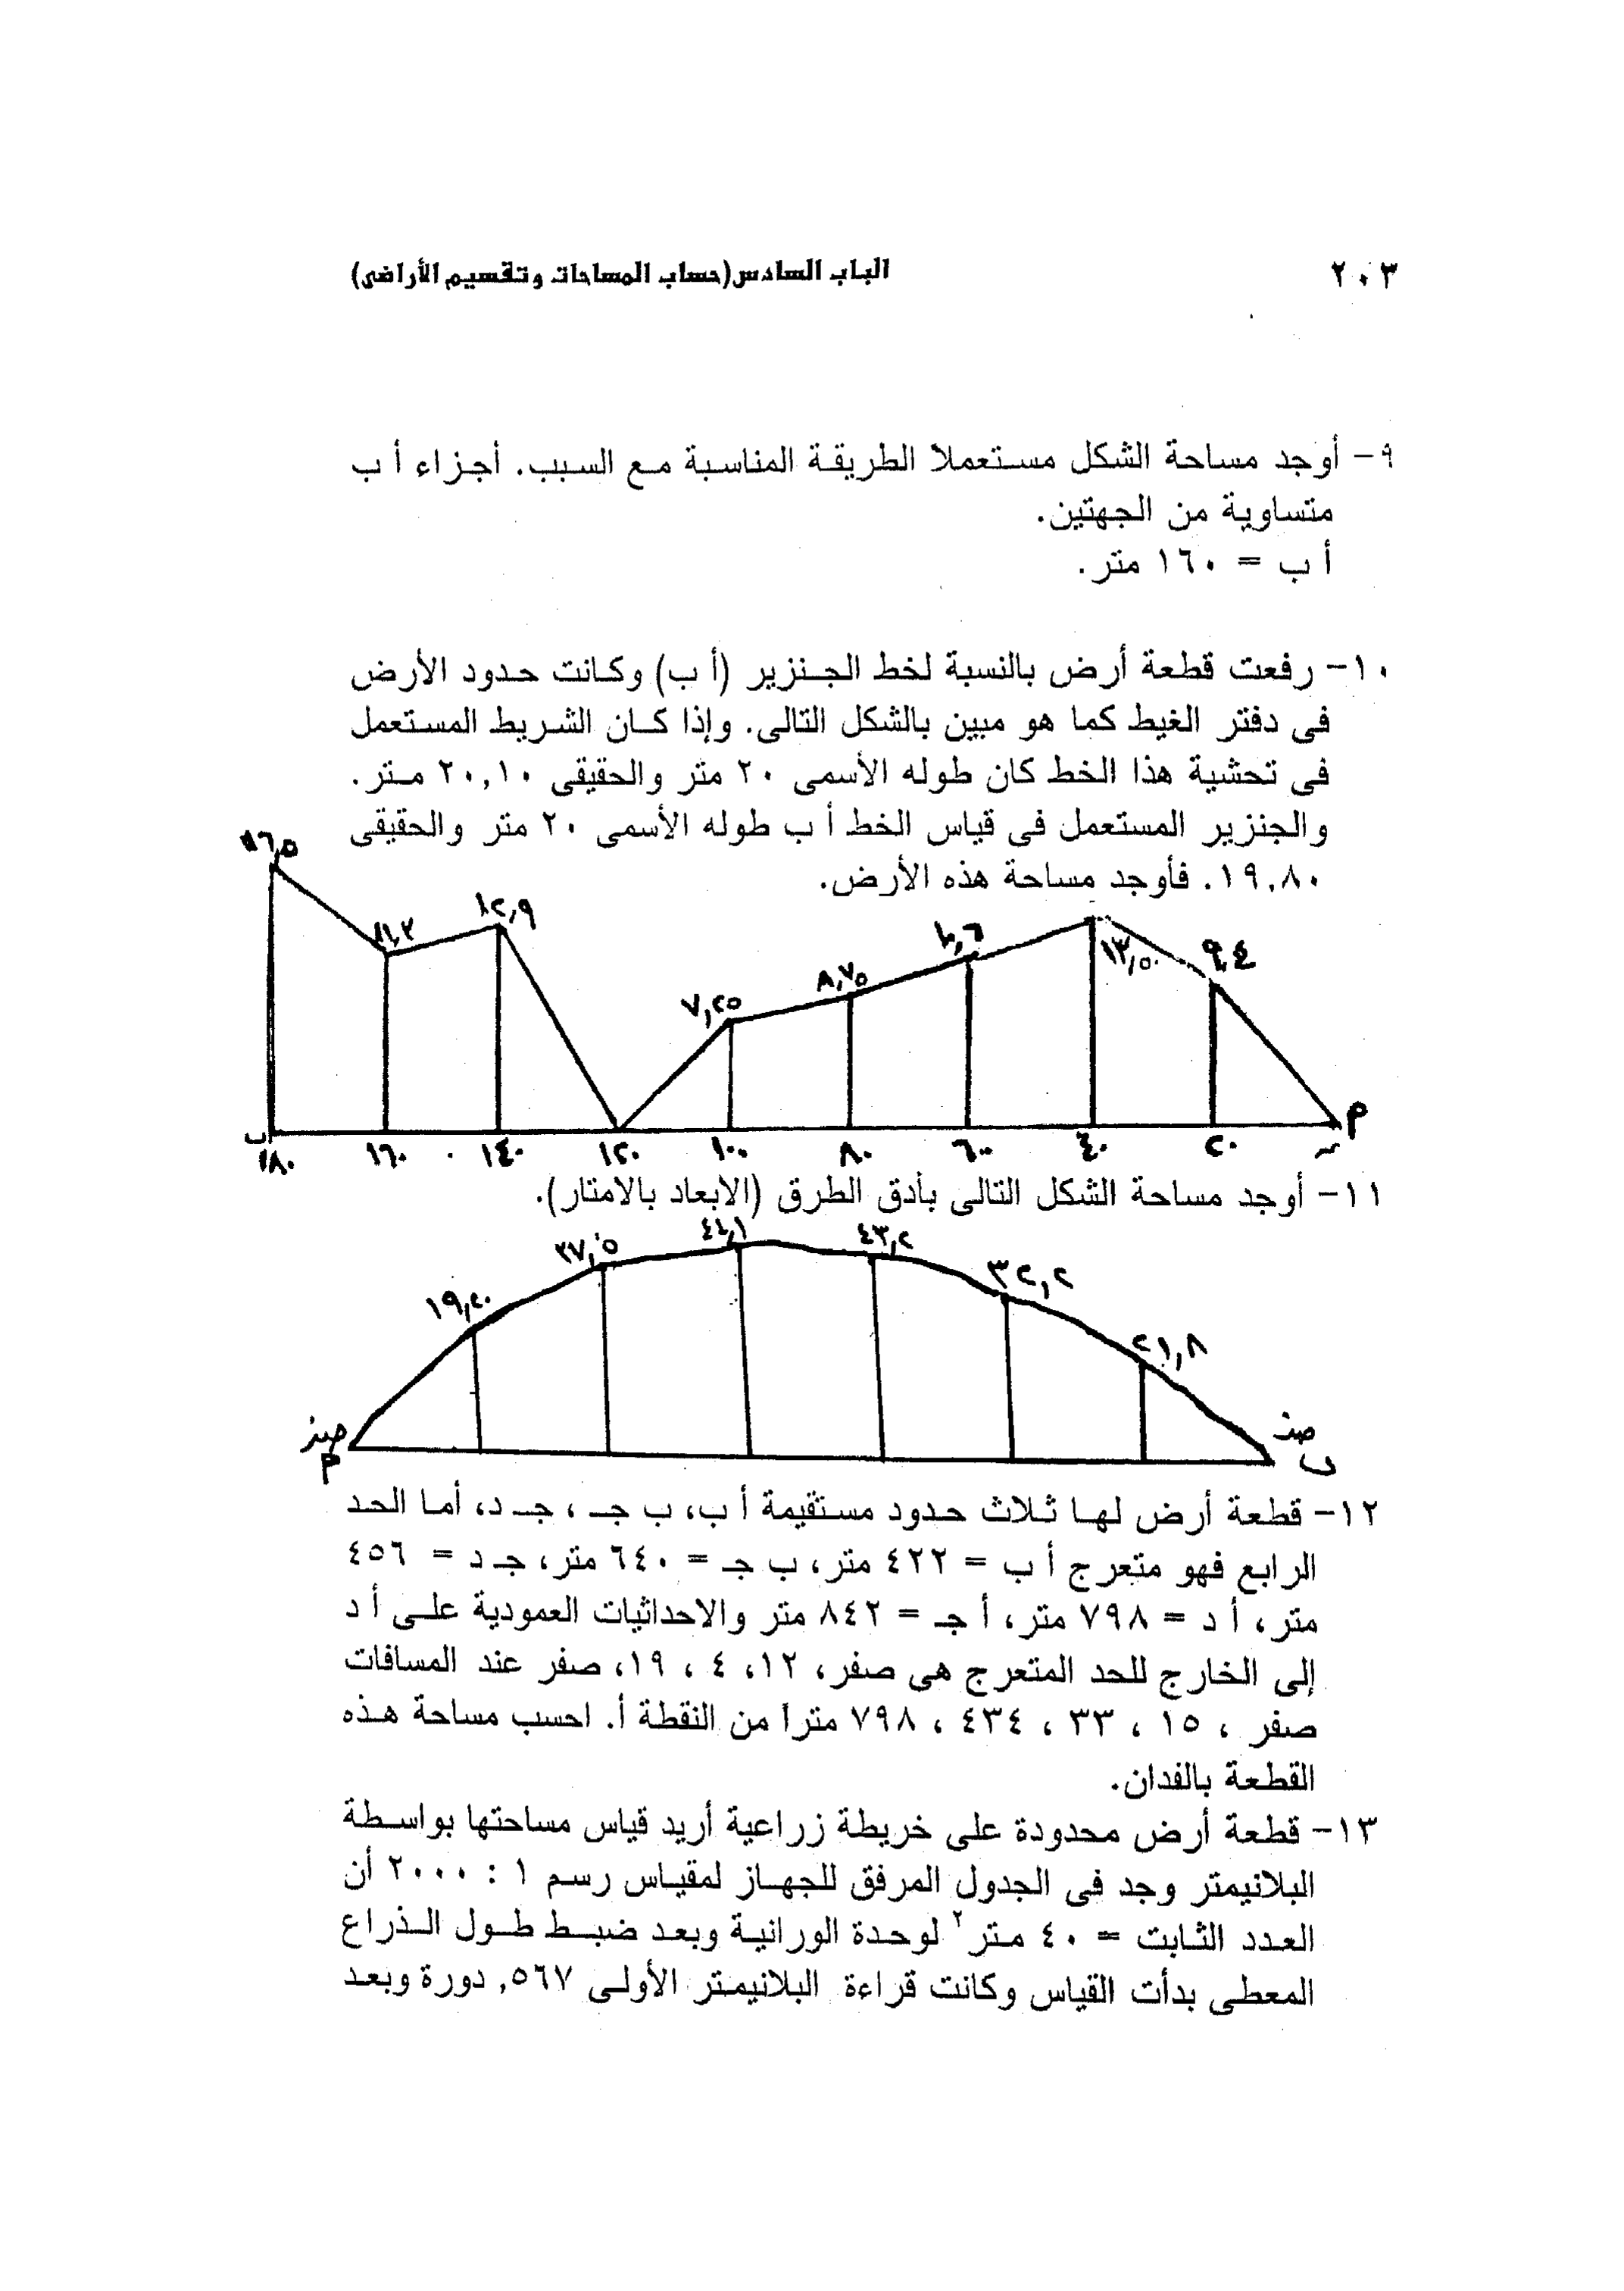 ٢٠٣
الباب السادس(حساب المساحات وتقسيم الأراضى)
٩- أوجد مساحة الشكل مستعملا الطريقة المناسبة مع السبب. أجزاء أ ب
متساوية من الجهتين.
أ ب = ١٦٠ متر.
١٠- رفعت قطعة أرض بالنسبة لخط الجنزير (أ ب) وكانت حدود الأرض
فى دفتر الغيط كما هو مبين بالشكل التالى. وإذا كان الشريط المستعمل
فى تحشية هذا الخط كان طوله الأسمى ٢٠ متر والحقيقى ٢٠,١٠ متر.
والجنزير المستعمل فى قياس الخط أ ب طوله الأسمى ٢٠ متر والحقيقى
١٩,٨٠. فأوجد مساحة هذه الأرض.
١٢,٩ ١٠,٦ ١٣,٥٠ ٩,٤
٧,٢٥ ٨,٧٥
ب ١٨٠ ١٦٠ ١٤٠ ١٢٠ ١٠٠ ٨٠ ٦٠ ٤٠ ٢٠ م
١١- أوجد مساحة الشكل التالى بأدق الطرق (الابعاد بالامتار).
١٩,٢٠ ٣٧,٥ ٤٤,١ ٤٣,٢ ٣٢,٢ ٢١,٨
م ب
١٢- قطعة أرض لها ثلاث حدود مستقيمة أ ب، ب جـ ، جـ د، أما الحد
الرابع فهو متعرج أ ب = ٤٢٢ متر، ب جـ = ٦٤٠ متر، جـ د = ٤٥٦
متر، أ د = ٧٩٨ متر، أ جـ = ٨٤٢ متر والاحداثيات العمودية على أ د
إلى الخارج للحد المتعرج هى صفر، ١٢، ٤ ، ١٩، صفر عند المسافات
صفر ، ١٥ ، ٣٣ ، ٤٣٤ ، ٧٩٨ مترا من النقطة أ. احسب مساحة هذه
القطعة بالفدان.
١٣- قطعة أرض محدودة على خريطة زراعية أريد قياس مساحتها بواسطة
البلانيمتر وجد فى الجدول المرفق للجهاز لمقياس رسم ١ : ٢٠٠٠ أن
العدد الثابت = ٤٠ متر٢ لوحدة الورانية وبعد ضبط طول الذراع
المعطى بدأت القياس وكانت قراءة البلانيمتر الأولى ٥٦٧, دورة وبعد